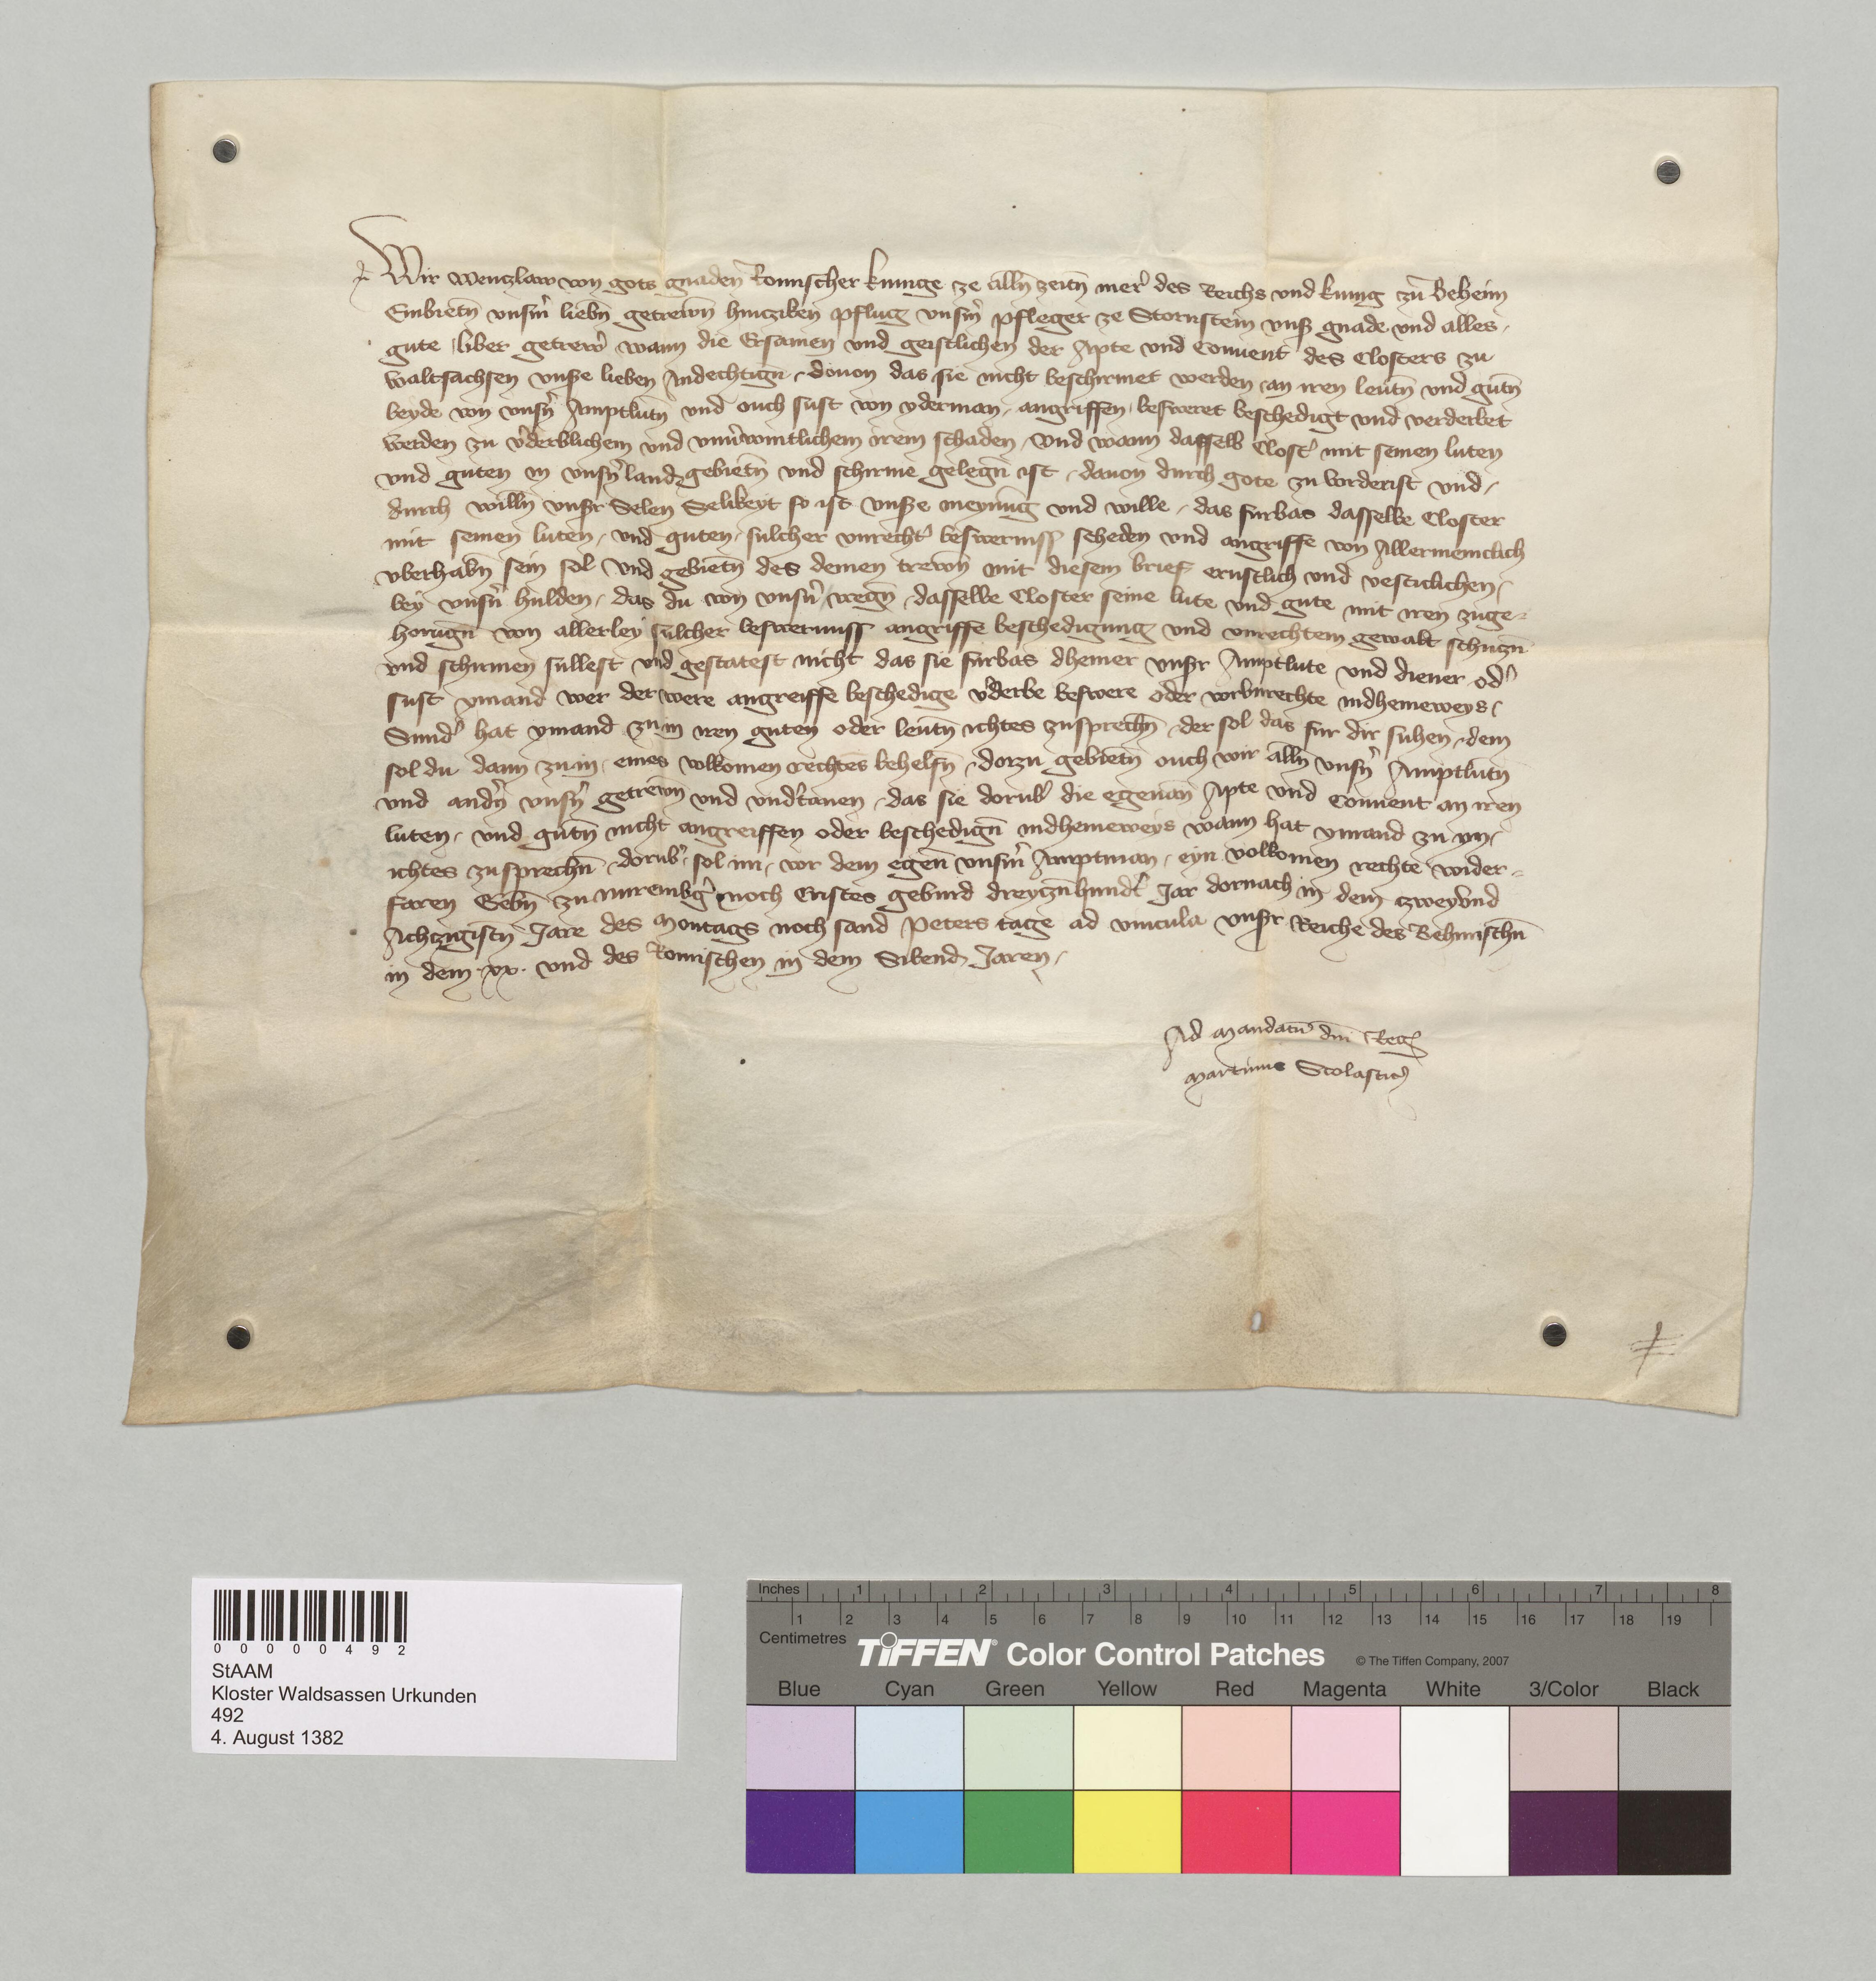 Wir Wenczlaw von gots gnaden Romischer kunige ze alln̄ zeitn̄ merer des Reichs vnd kunig zu Beheim
Enbietn̄ vnsm̄ liebn̄ getrewn̄ hincziken pflug vnsm̄ pfleger ze Stornstein vnsꝛ gnade vnd alles
gute liber getrewr wann die Ersamen vnd geistlichen der Apte vnd Conuent des Closters zu
Waltsachsen vnsꝛe lieben Andechtign̄ douon das sie nicht beschirmet werden an iren leutn̄ vnd gutn̄
beyde von vnsn̄ Amptlutn̄ vnd ouch sust von yderman angriffen besweret beschedigt vnd verderbet
werden zu vderblichem vnd irem schaden vnd wann dasselb Closter mit seinen luten
vnd guten in vnsn̄ land gebietn̄ vnd schirme gelegn̄ ist dauon durch gote zu vorderist vnd
durch willn̄ vnsꝛr Selen Selikeyt so ist vnsꝛe meynūg vnd wille das furbas dasselbe Closter
mit seinen luten vnd guten sulcher vnrechter beswerniss scheden vnd angriffe von Allermeniclich
vberhabn̄ sein sol vnd gebietn̄ des deinen trewn̄ mit diesem brief ernstlich vnd vesticlichen
bey vnsn̄ hulden das du von vnsn̄ wegn̄ dasselbe Closter seine lute vnd gute mit iren zuge
horūgn̄ von allerley sulcher beswerniss angriffe beschedigung vnd vnrechtem gewalt schuczn̄
vnd schirmen sullest vnd gestatest nicht das sie furbas dheiner vnsꝛr Amptlute vnd diener oder
sust ymand wer der were angreiffe beschedige vderbe beswere oder vorvnrechte indheineweys
Sunder hat ymand zu in iren guten oder leutn̄ ichtes zusprechn̄ der sol das fur dir suhen dem
sol du dann zu in eines volkomen rechtes behelfn̄ dorzu gebietn̄ ouch wir alln̄ vnsn̄ Amptlutn̄
vnd andn̄ vnsn̄ getrewn̄ vnd vndtanen das sie dorub die egenan̄ Apte vnd Conuent an iren
luten vnd gutn̄ nicht angreiffen oder beschedign̄ indheineweys wann hat ymand zu yn
ichtes zusprechn̄ dorub sol im vor dem egen̄ vnsm̄ Amptman eyn volkomen rechte wider
faren Gebn̄ zu Nurembg noch Cristes geburd dreyczenhundt Jar dornach in dem czweyvnd
Achczigistn̄ Jare des Montags noch sand Peters tage ad vincula vnsꝛr Reiche des Behmischn̄
in dem xx. vnd des Romischen in dem Sibend Jaren
Ad mandatū dn̄i Reg
Martinus Scolastic
0 0 0 0 0 4 9 2
StAAM
Kloster Waldsassen Urkunden
492
4. August 1382
Inches 1 2 3 4 5 6 7 8
1 2 3 4 5 6 7 8 9 10 11 12 13 14 15 16 17 18 19
Centimetres
TIFFEN® Color Control Patches © The Tiffen Company, 2007
Blue Cyan Green Yellow Red Magenta White 3/Color Black